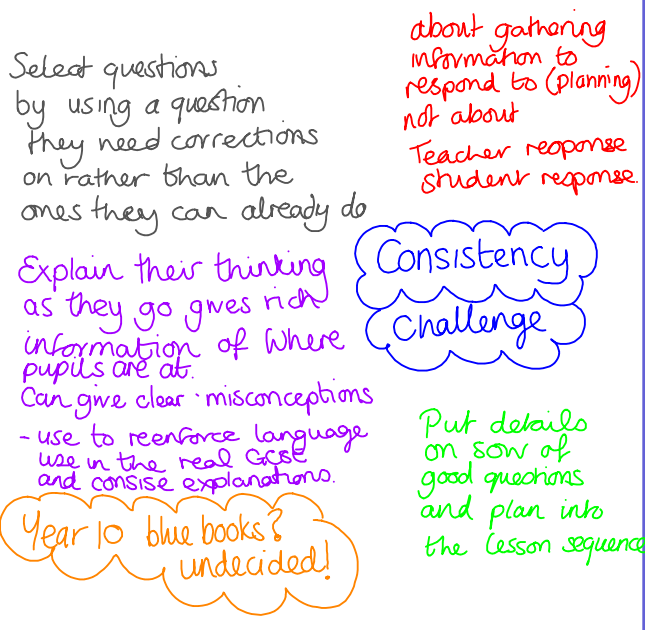 Select questions
by using a question
they need corrections
on rather than the
ones they can already do
about gathering
information to
respond to (planning)
not about
Teacher response
student response.
Consistency
Challenge
Explain their thinking
as they go gives rich
information of where
pupils are at.
Can give clear misconceptions
- use to reenforce language
use in the real GCSE
and consise explanations.
Put details
on sow of
good questions
and plan into
the lesson sequence
Year 10 blue books?
undecided!